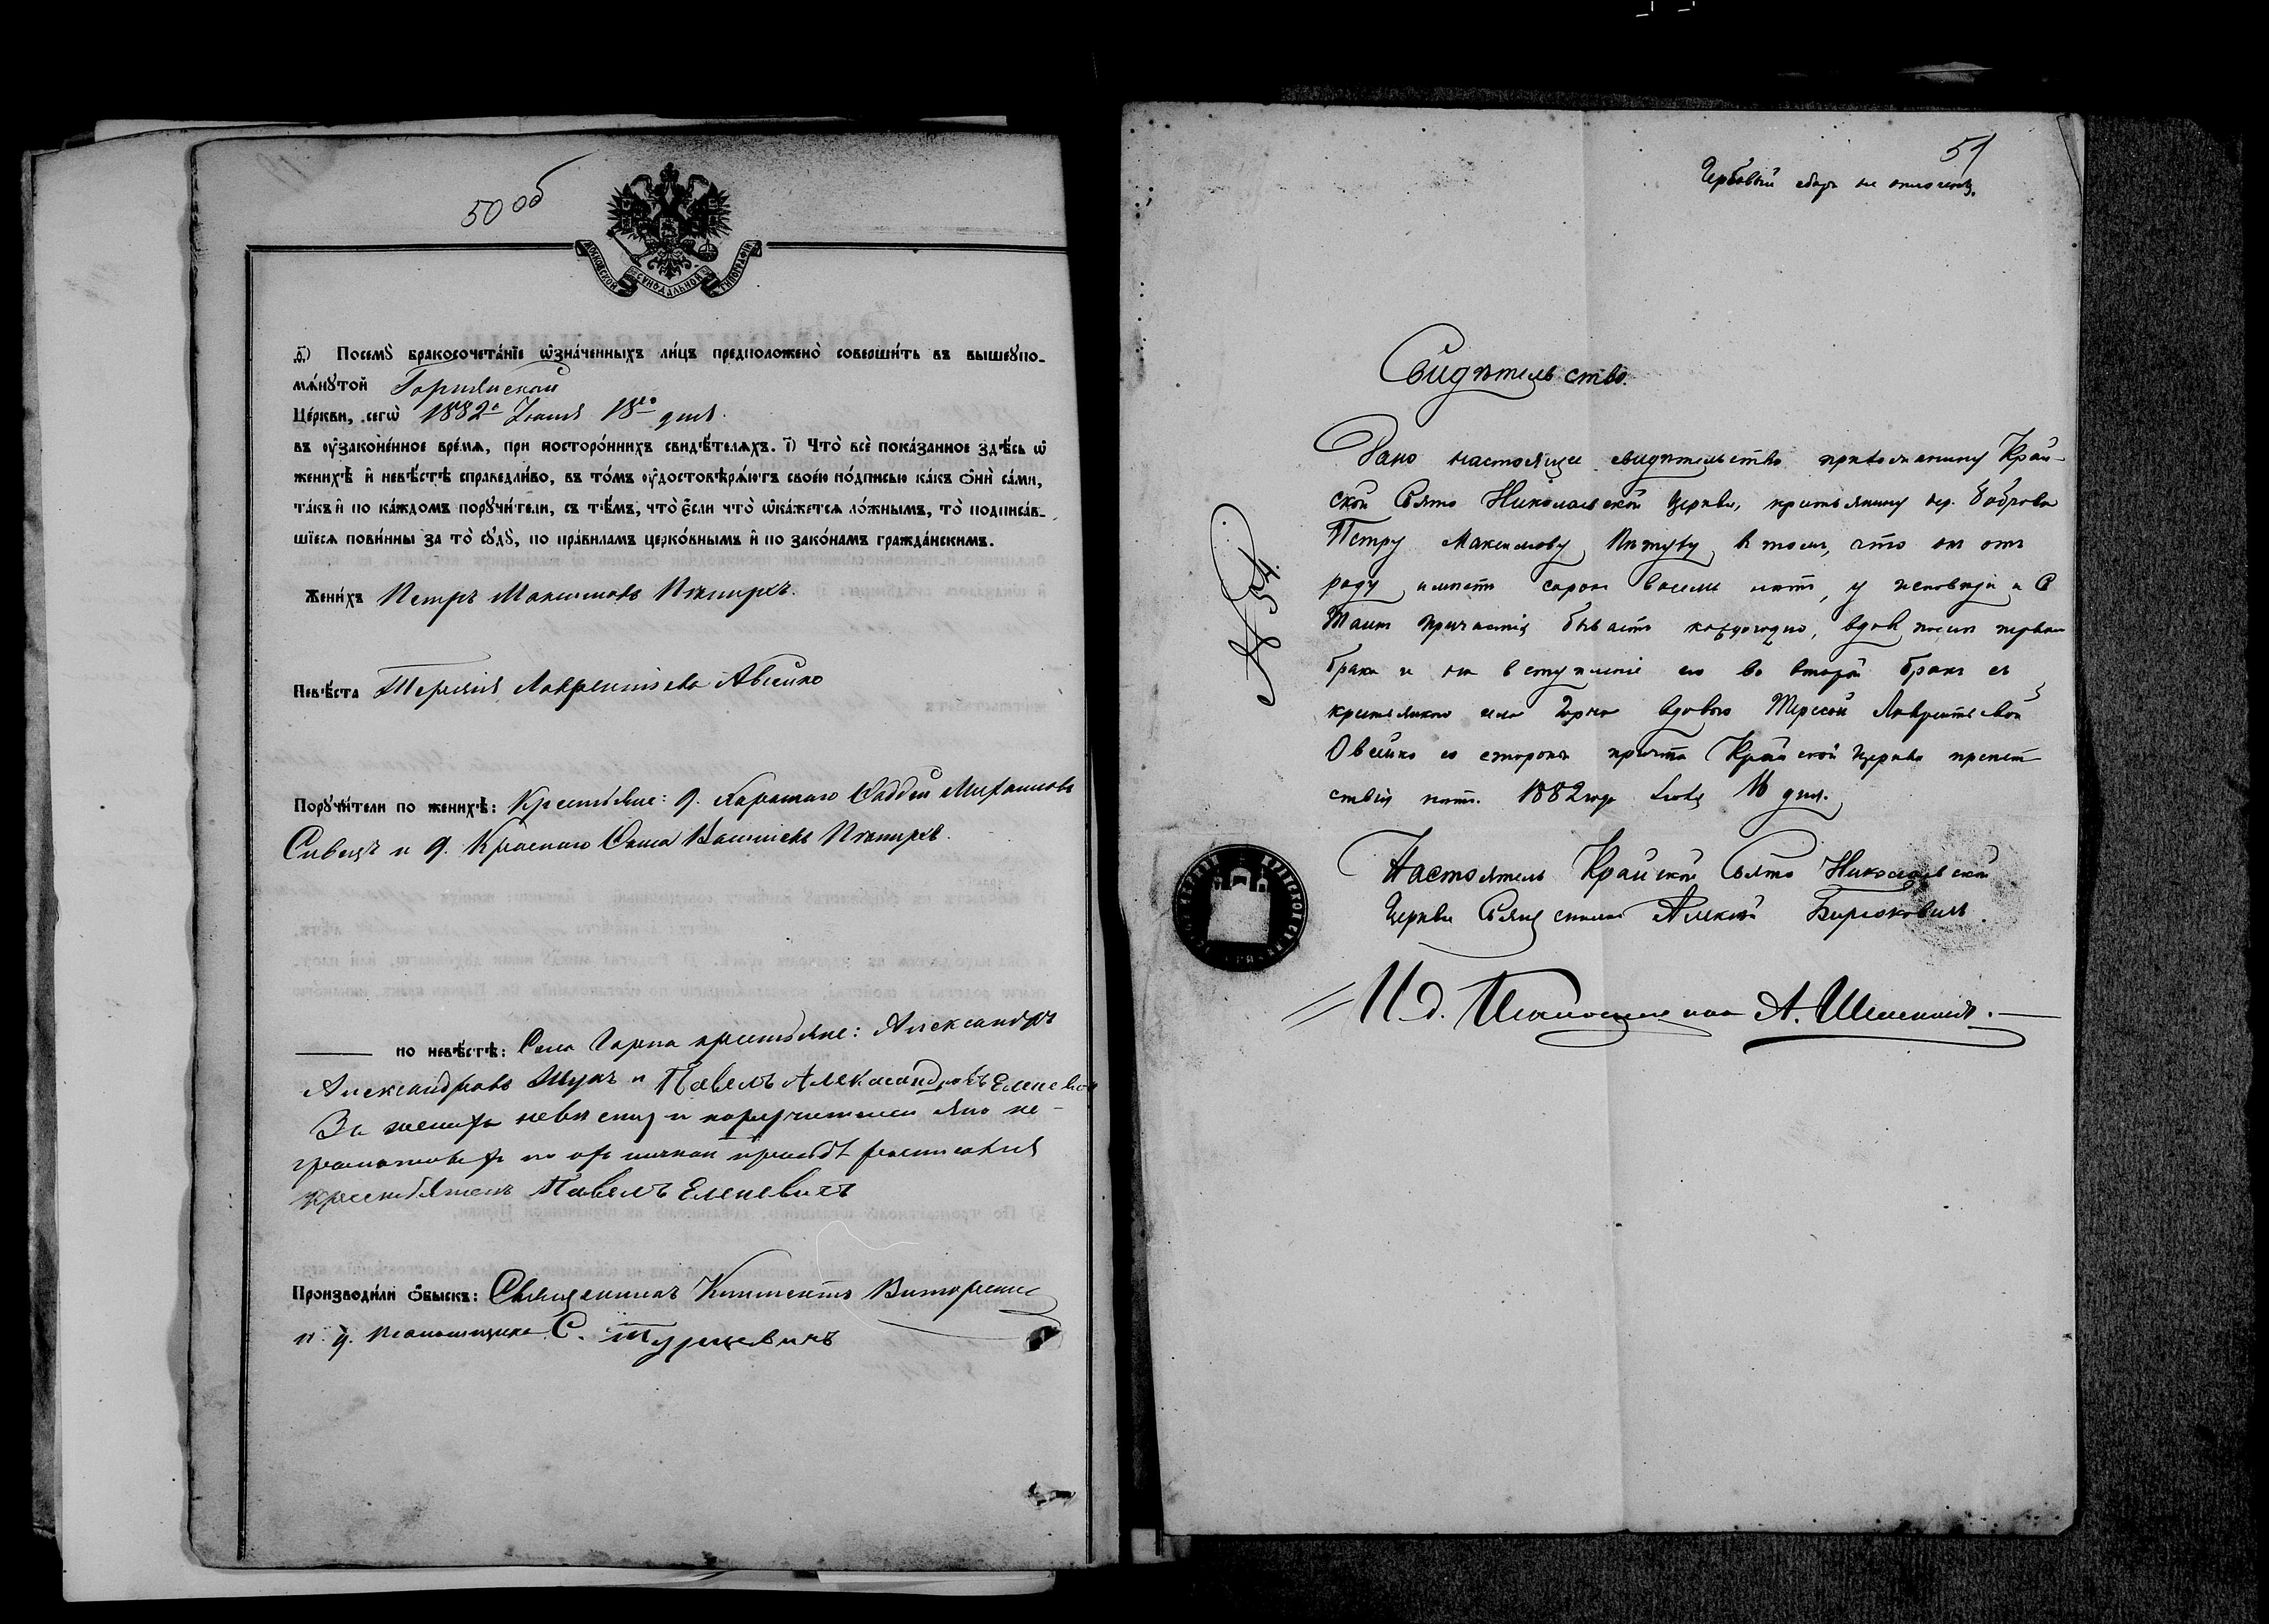 50 об
МОСКОВСКОЙ СѴНОДАЛЬНОЙ ТИПОГРАФІИ
д҃) Посемꙋ̀ бракосочета́нїе ѡ҆зна́ченныхъ ли́цъ предположено̀ соверши́ть въ вышеꙋпо-
мѧ́нꙋтой Горнянской
Це́ркви, сегѡ̀ 1882 г. Іюля 18го дня.
въ оу҆зако́ненное вре́мѧ, при посторо́ннихъ свидѣ́телѧхъ. і҃) Что̀ всѐ пока́занное здѣ́сь ѡ҆
женихѣ̀ и҆ невѣ́стѣ справедли́во, въ то́мъ оу҆достовѣрѧ́ютъ свое́ю по́дписью ка́къ ѻ҆нѝ са́ми,
та́къ и҆ по ка́ждомъ порꙋчи́тели, съ тѣ́мъ, что̀ є҆́сли что̀ ѡ҆ка́жетсѧ ло́жнымъ, то̀ подписа́в-
шїесѧ пови́нны за то̀ сꙋдꙋ̀, по пра́виламъ церко́внымъ и҆ по зако́намъ гражда́нскимъ.
Жени́хъ Петръ Максимовъ
Невѣ́ста Терезія Лаврентіева Авсейко
Порꙋчи́тели по женихѣ̀: Крестьяне: д. Ѳаддей
Сивецъ и д. Краснаго Ѳома
по невѣ́стѣ: Села Горна крестьяне: Александръ
Александровъ и Павелъ Александровъ Еленевичъ
За жениха невѣсту и поручителей
грамотныхъ по ихъ личной просьбѣ росписался
крестьянинъ Павелъ Еленевичъ
Производи́ли ѻ҆́быскъ: Священникъ
и. д. псаломщика С. Турцевичъ
51
Гербовый сборъ не оплаченъ.
Свидѣтельство.
№ 54.
Дано настоящее свидѣтельство прихожанину Край-
ской Свято Николаевской Церкви, крестьянину дер.
Петру Максимову въ томъ, что онъ отъ
роду имѣетъ сорокъ восемь лѣтъ, у исповѣди и С
Таинъ Причастія бываетъ каждогодно, вдовъ послѣ перваго
брака и на вступленіе его во второй бракъ съ
крестьянкою села Горна вдовою Терезой Лаврентьевой
Овсейко со стороны причта Крайской Церкви препят
ствія нѣтъ. 1882 года 16 дня.
Настоятель Крайской Свято Николаевской
Церкви Священникъ Алексѣй Бирюковичъ.
И. д. Псаломщика А.